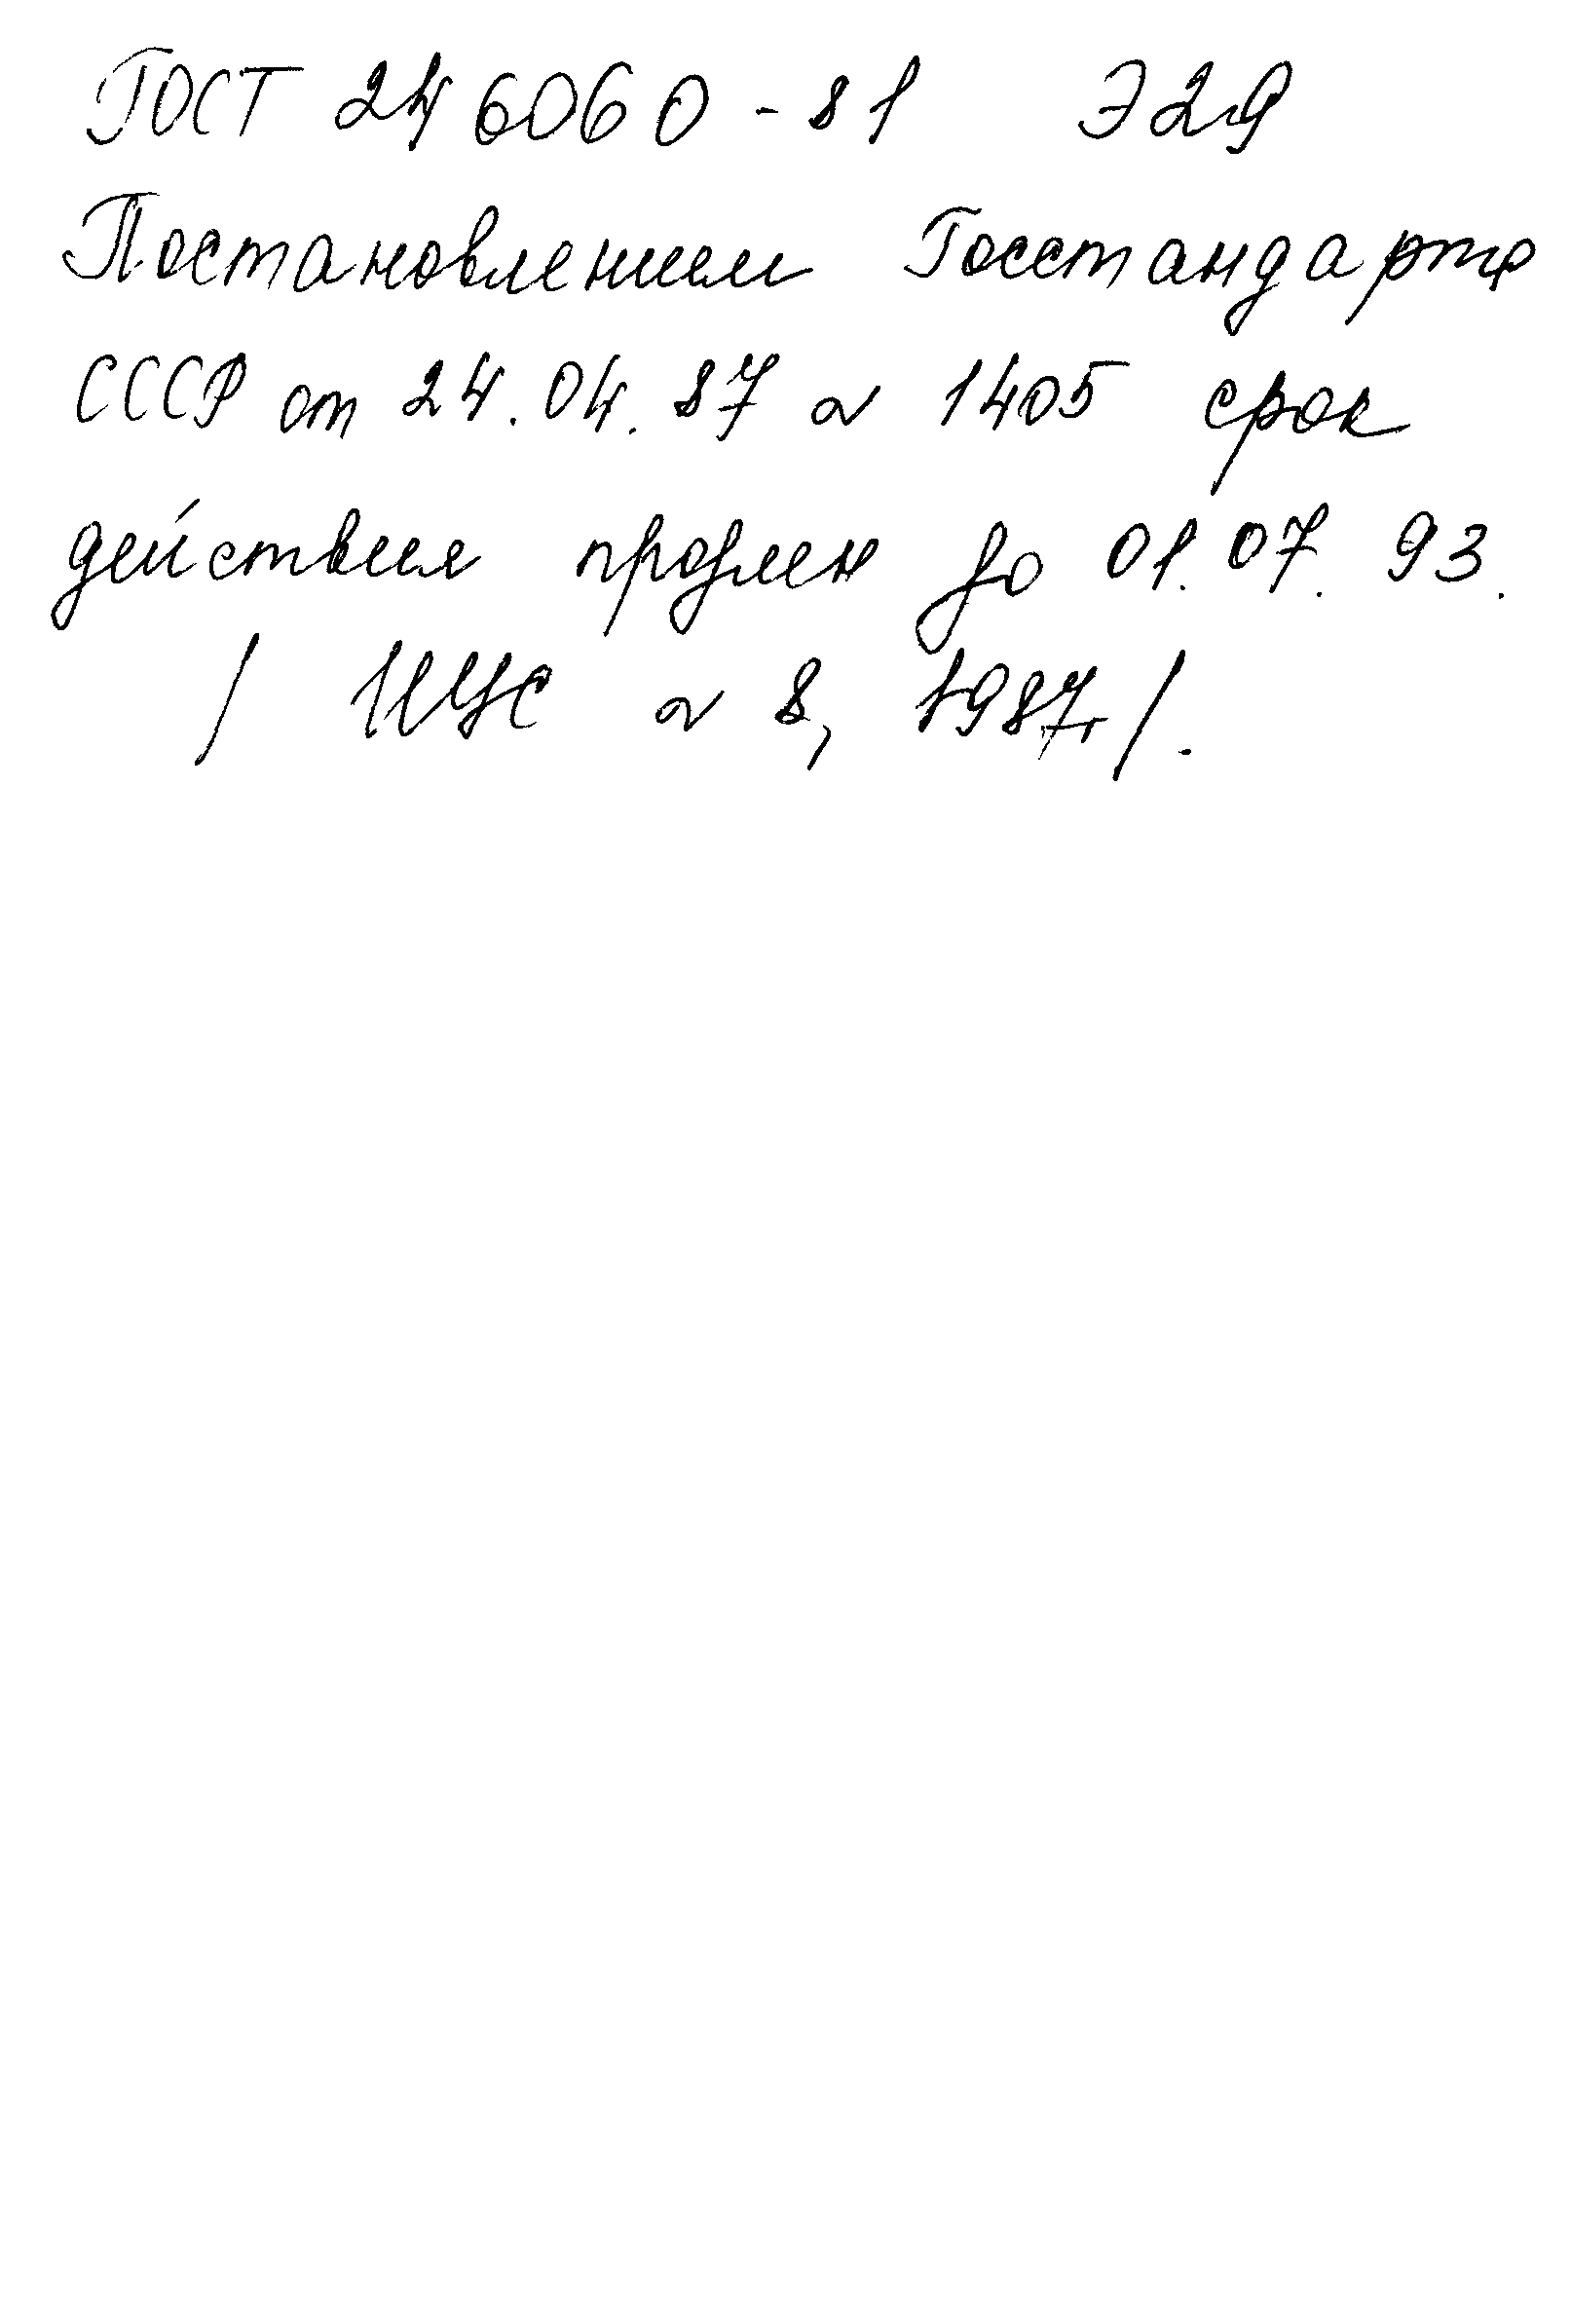 ГОСТ 246060-81 Э29
Постановлением Госстандарта
СССР от 24.04.87 № 1405 срок
действия продлен до 01.07.93.
/ ИУС № 8, 1987г/.